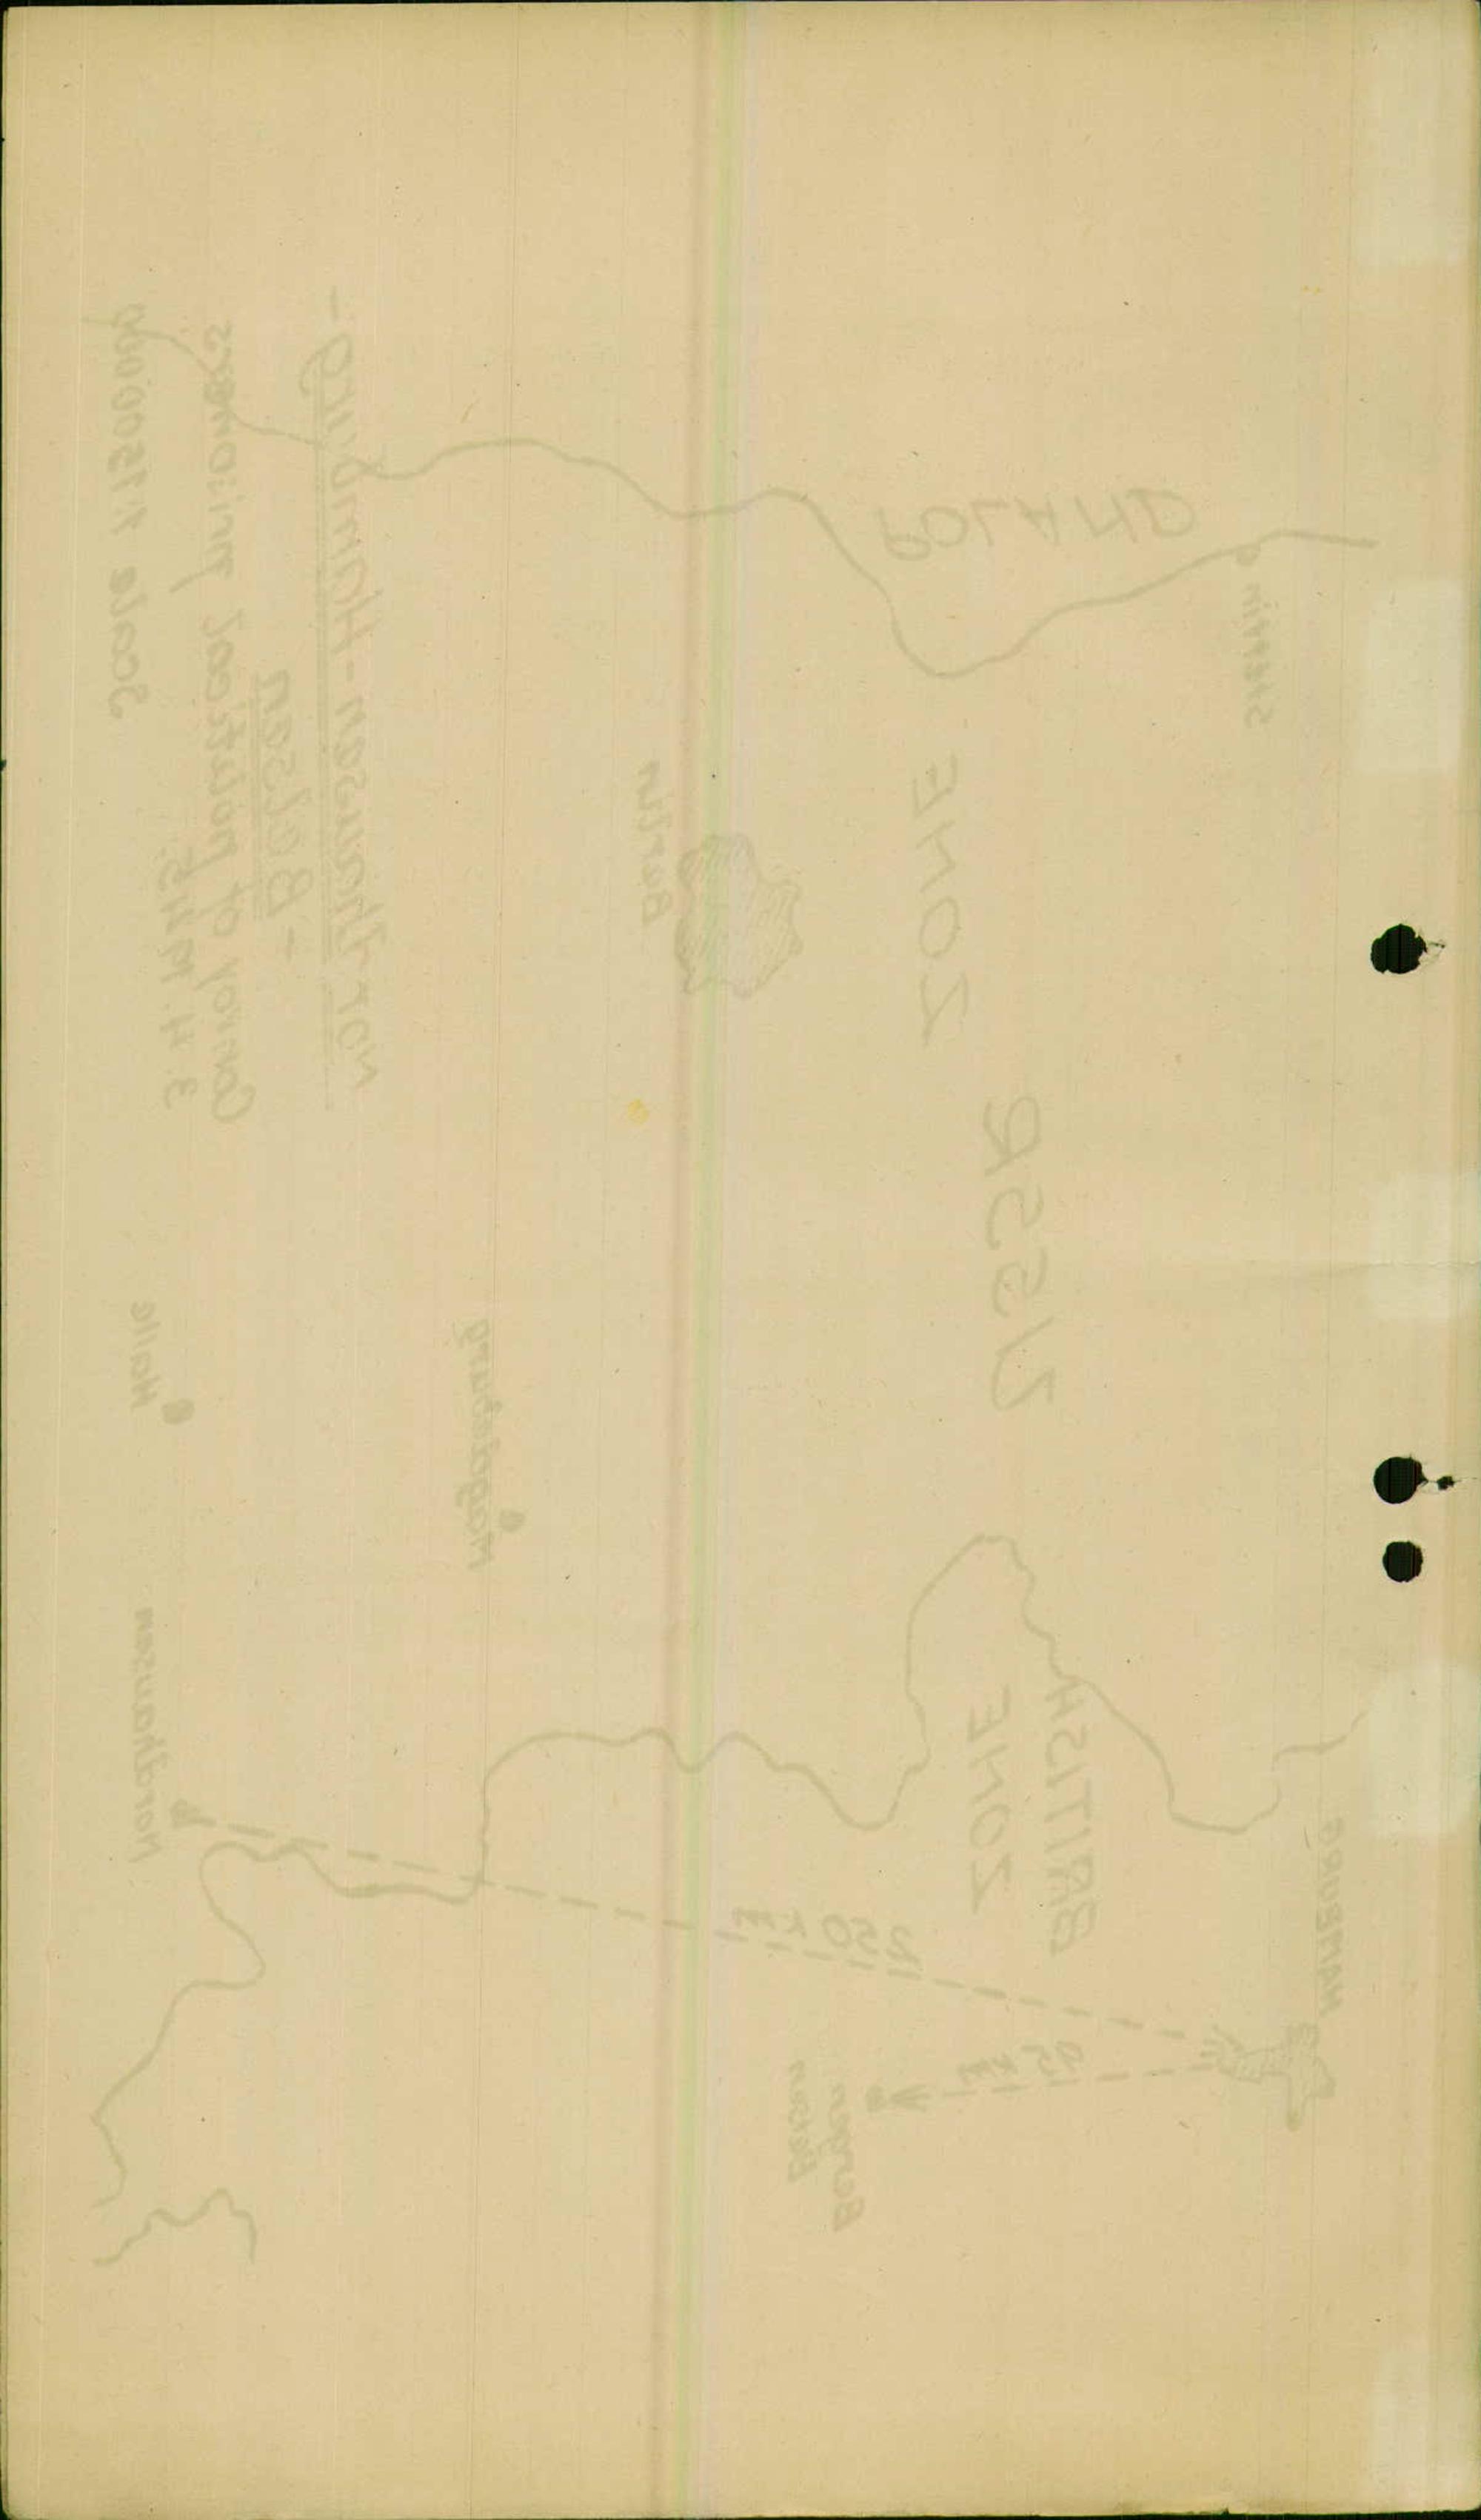 HAMBURG
Stettin
POLAND
BRITISH
ZONE
USSR
ZONE
95 km
250 km
Bergen
Belsen
Berlin
Magdeburg
Nordhausen-Hamburg-
- Belsen
Camp of political prisoners
3.4.1945
Scale
Halle
Nordhausen